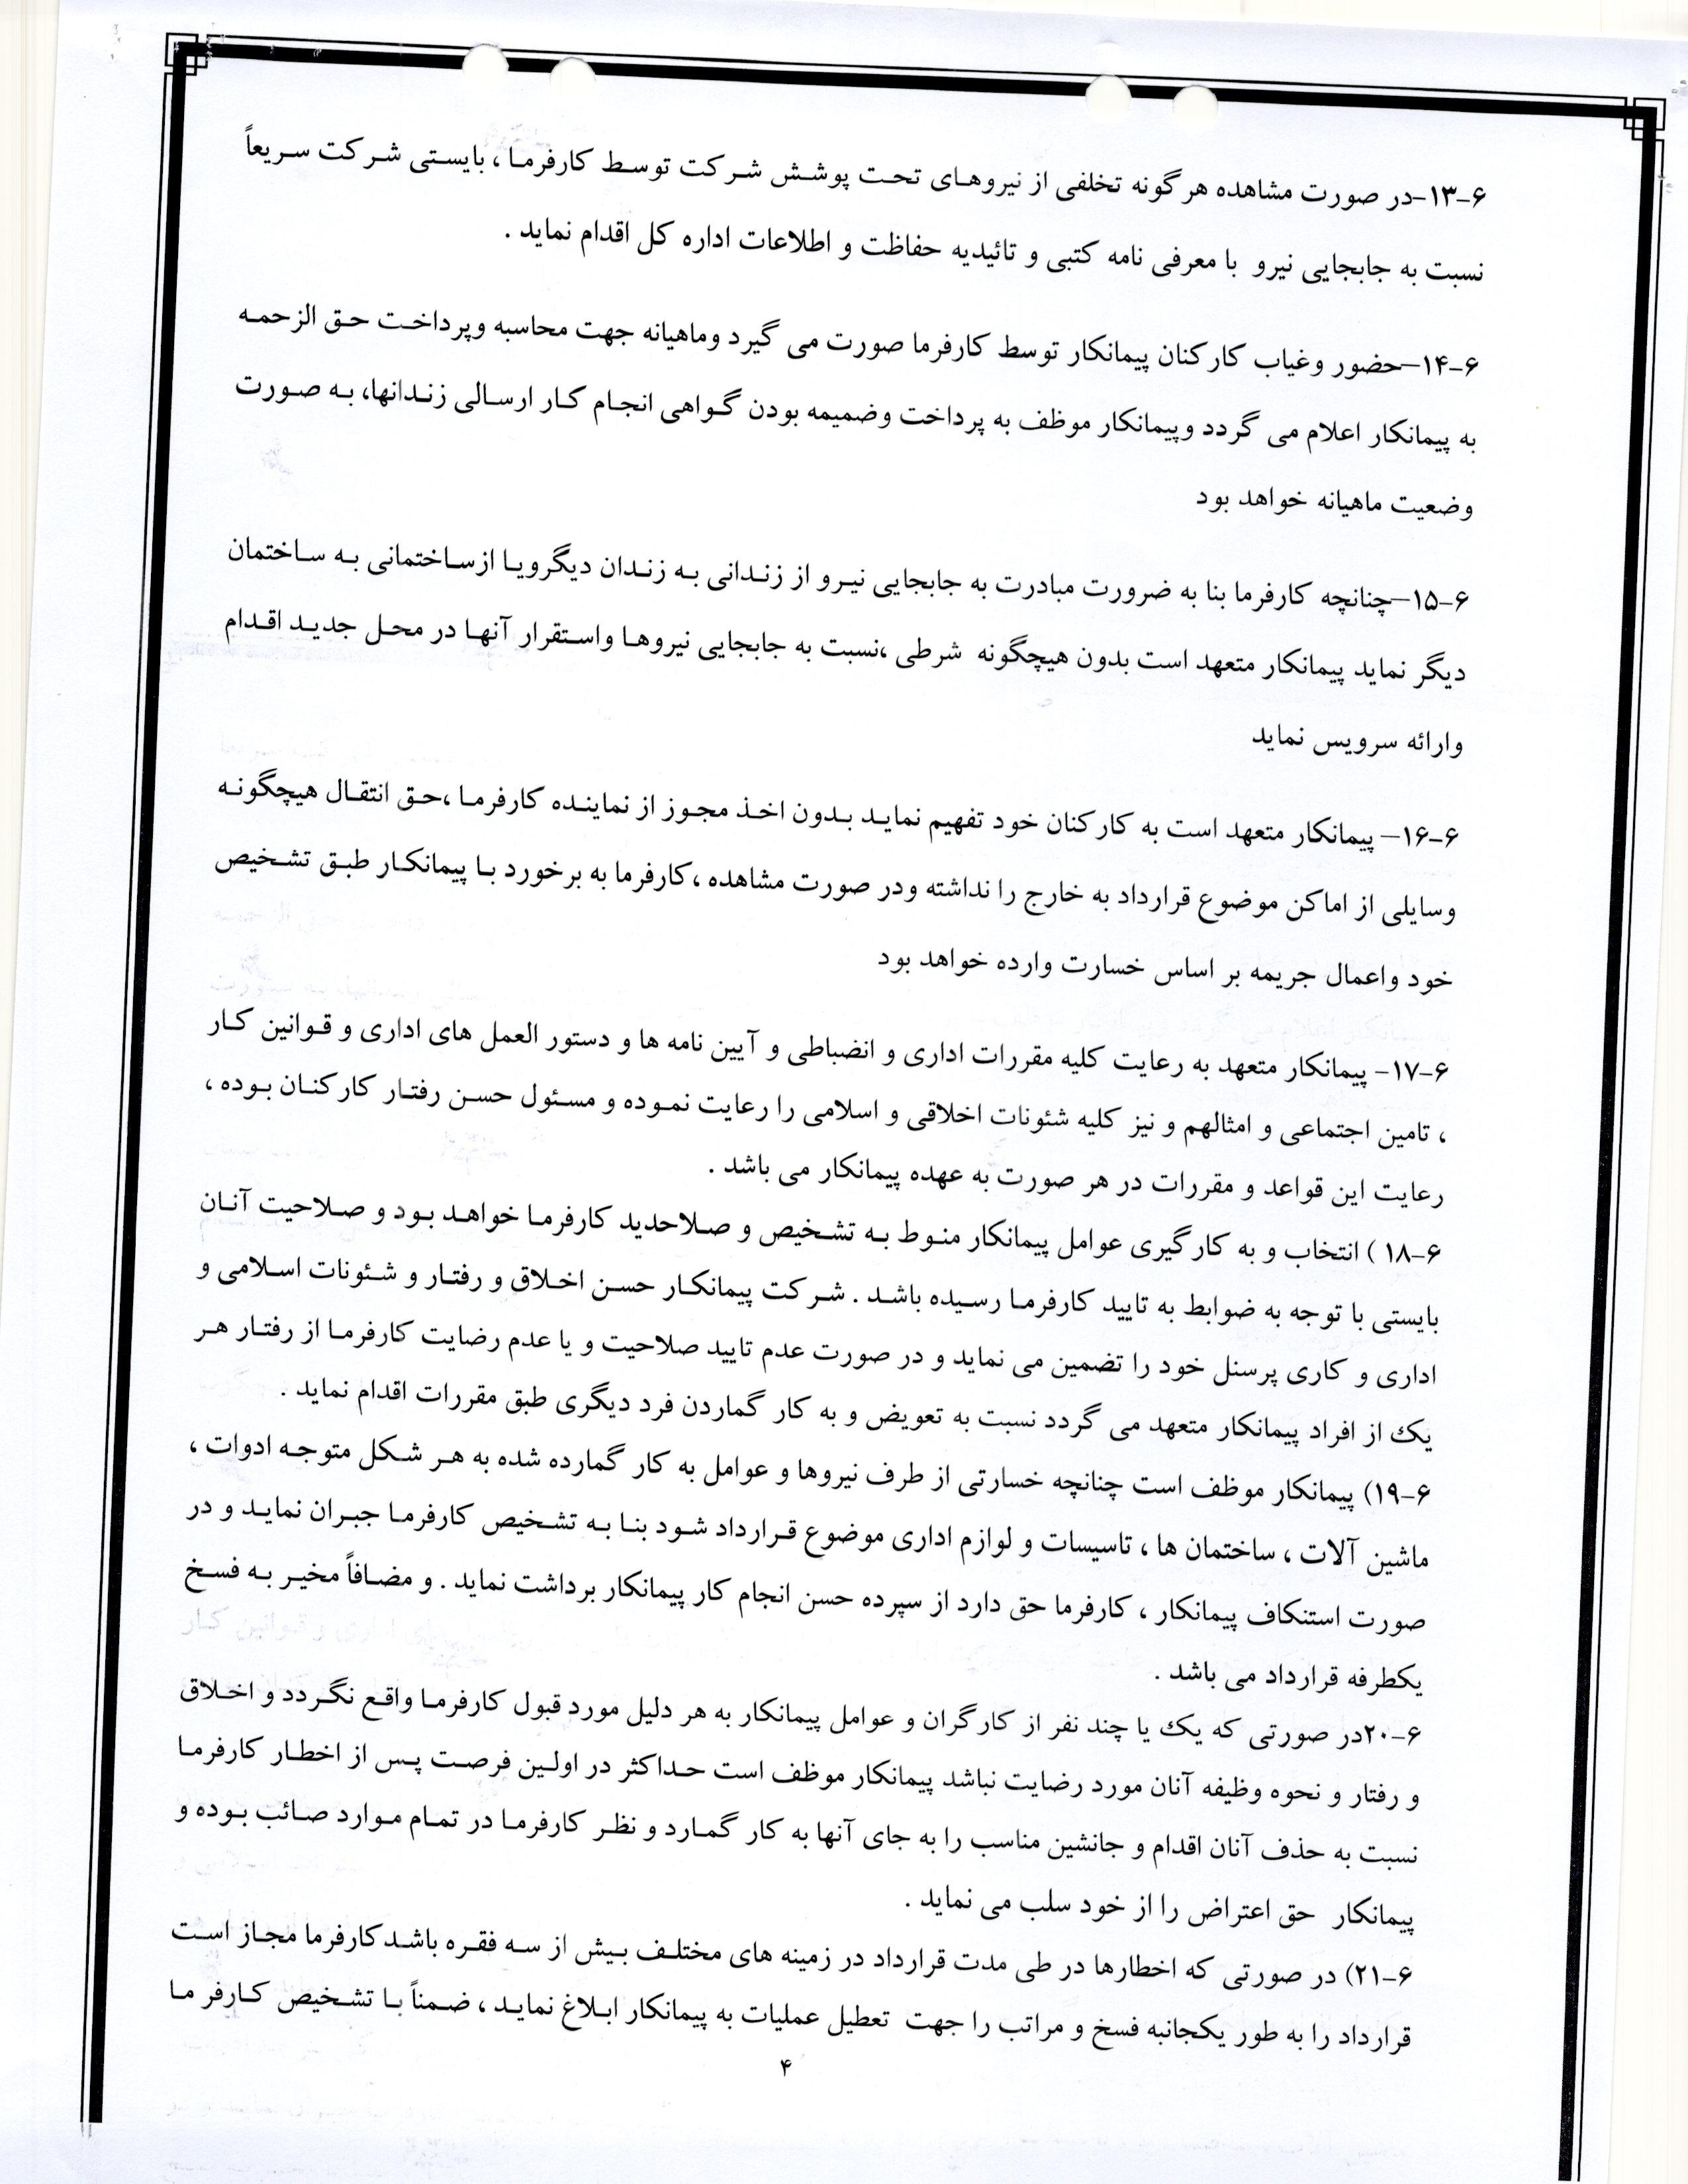 ۶-۱۳-در صورت مشاهده هر گونه تخلفی از نیروهای تحت پوشش شرکت توسط کارفرما ، بایستی شرکت سریعاً
نسبت به جابجایی نیرو با معرفی نامه کتبی و تائیدیه حفاظت و اطلاعات اداره کل اقدام نماید .
۶-۱۴-حضور وغیاب کارکنان پیمانکار توسط کارفرما صورت می گیرد وماهیانه جهت محاسبه وپرداخت حق الزحمه
به پیمانکار اعلام می گردد وپیمانکار موظف به پرداخت وضمیمه بودن گواهی انجام کار ارسالی زندانها، به صورت
وضعیت ماهیانه خواهد بود
۶-۱۵-چنانچه کارفرما بنا به ضرورت مبادرت به جابجایی نیرو از زندانی به زندان دیگرویا ازساختمانی به ساختمان
دیگر نماید پیمانکار متعهد است بدون هیچگونه شرطی ،نسبت به جابجایی نیروها واستقرار آنها در محل جدید اقدام
وارائه سرویس نماید
۶-۱۶- پیمانکار متعهد است به کارکنان خود تفهیم نماید بدون اخذ مجوز از نماینده کارفرما ،حق انتقال هیچگونه
وسایلی از اماکن موضوع قرارداد به خارج را نداشته ودر صورت مشاهده ،کارفرما به برخورد با پیمانکار طبق تشخیص
خود واعمال جریمه بر اساس خسارت وارده خواهد بود
۶-۱۷- پیمانکار متعهد به رعایت کلیه مقررات اداری و انضباطی و آیین نامه ها و دستور العمل های اداری و قوانین کار
، تامین اجتماعی و امثالهم و نیز کلیه شئونات اخلاقی و اسلامی را رعایت نموده و مسئول حسن رفتار کارکنان بوده ،
رعایت این قواعد و مقررات در هر صورت به عهده پیمانکار می باشد .
۶-۱۸ ) انتخاب و به کارگیری عوامل پیمانکار منوط به تشخیص و صلاحدید کارفرما خواهد بود و صلاحیت آنان
بایستی با توجه به ضوابط به تایید کارفرما رسیده باشد . شرکت پیمانکار حسن اخلاق و رفتار و شئونات اسلامی و
اداری و کاری پرسنل خود را تضمین می نماید و در صورت عدم تایید صلاحیت و یا عدم رضایت کارفرما از رفتار هر
یک از افراد پیمانکار متعهد می گردد نسبت به تعویض و به کار گماردن فرد دیگری طبق مقررات اقدام نماید .
۶-۱۹) پیمانکار موظف است چنانچه خسارتی از طرف نیروها و عوامل به کار گمارده شده به هر شکل متوجه ادوات ،
ماشین آلات ، ساختمان ها ، تاسیسات و لوازم اداری موضوع قرارداد شود بنا به تشخیص کارفرما جبران نماید و در
صورت استنکاف پیمانکار ، کارفرما حق دارد از سپرده حسن انجام کار پیمانکار برداشت نماید . و مضافاً مخیر به فسخ
یکطرفه قرارداد می باشد .
۶-۲۰در صورتی که یک یا چند نفر از کارگران و عوامل پیمانکار به هر دلیل مورد قبول کارفرما واقع نگردد و اخلاق
و رفتار و نحوه وظیفه آنان مورد رضایت نباشد پیمانکار موظف است حداکثر در اولین فرصت پس از اخطار کارفرما
نسبت به حذف آنان اقدام و جانشین مناسب را به جای آنها به کار گمارد و نظر کارفرما در تمام موارد صائب بوده و
پیمانکار حق اعتراض را از خود سلب می نماید .
۶-۲۱) در صورتی که اخطارها در طی مدت قرارداد در زمینه های مختلف بیش از سه فقره باشدکارفرما مجاز است
قرارداد را به طور یکجانبه فسخ و مراتب را جهت تعطیل عملیات به پیمانکار ابلاغ نماید ، ضمناً با تشخیص کارفر ما
۴